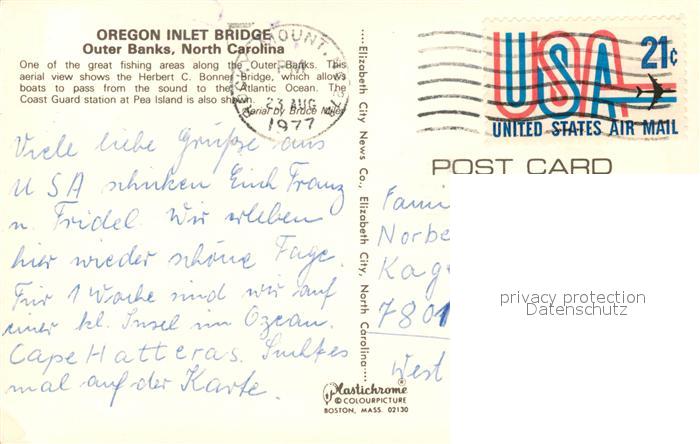 OREGON INLET BRIDGE
Outer Banks, North Carolina
One of the great fishing areas along the Outer Banks. This
aerial view shows the Herbert C. Bonner Bridge, which allows
boats to pass from the sound to the Atlantic Ocean. The
Coast Guard station at Pea Island is also shown.
Aerial by Bruce
MOUNT,
PM
23 AUG
1977
Viele liebe Grüße aus
USA schicken Euch Franz
u. Fridel. Wir erleben
hier wieder schöne Tage.
Für 1 Woche sind wir auf
einer kl. Insel im Ozean.
Cape Hatteras. Suchtes
mal auf der Karte.
Elizabeth City News Co., Elizabeth City, North Carolina
Plastichrome®
© COLOURPICTURE
BOSTON, MASS. 02130
USA 21c
UNITED STATES AIR MAIL
POST CARD
Fami
Norbe
Kag
7801
West
privacy protection
Datenschutz